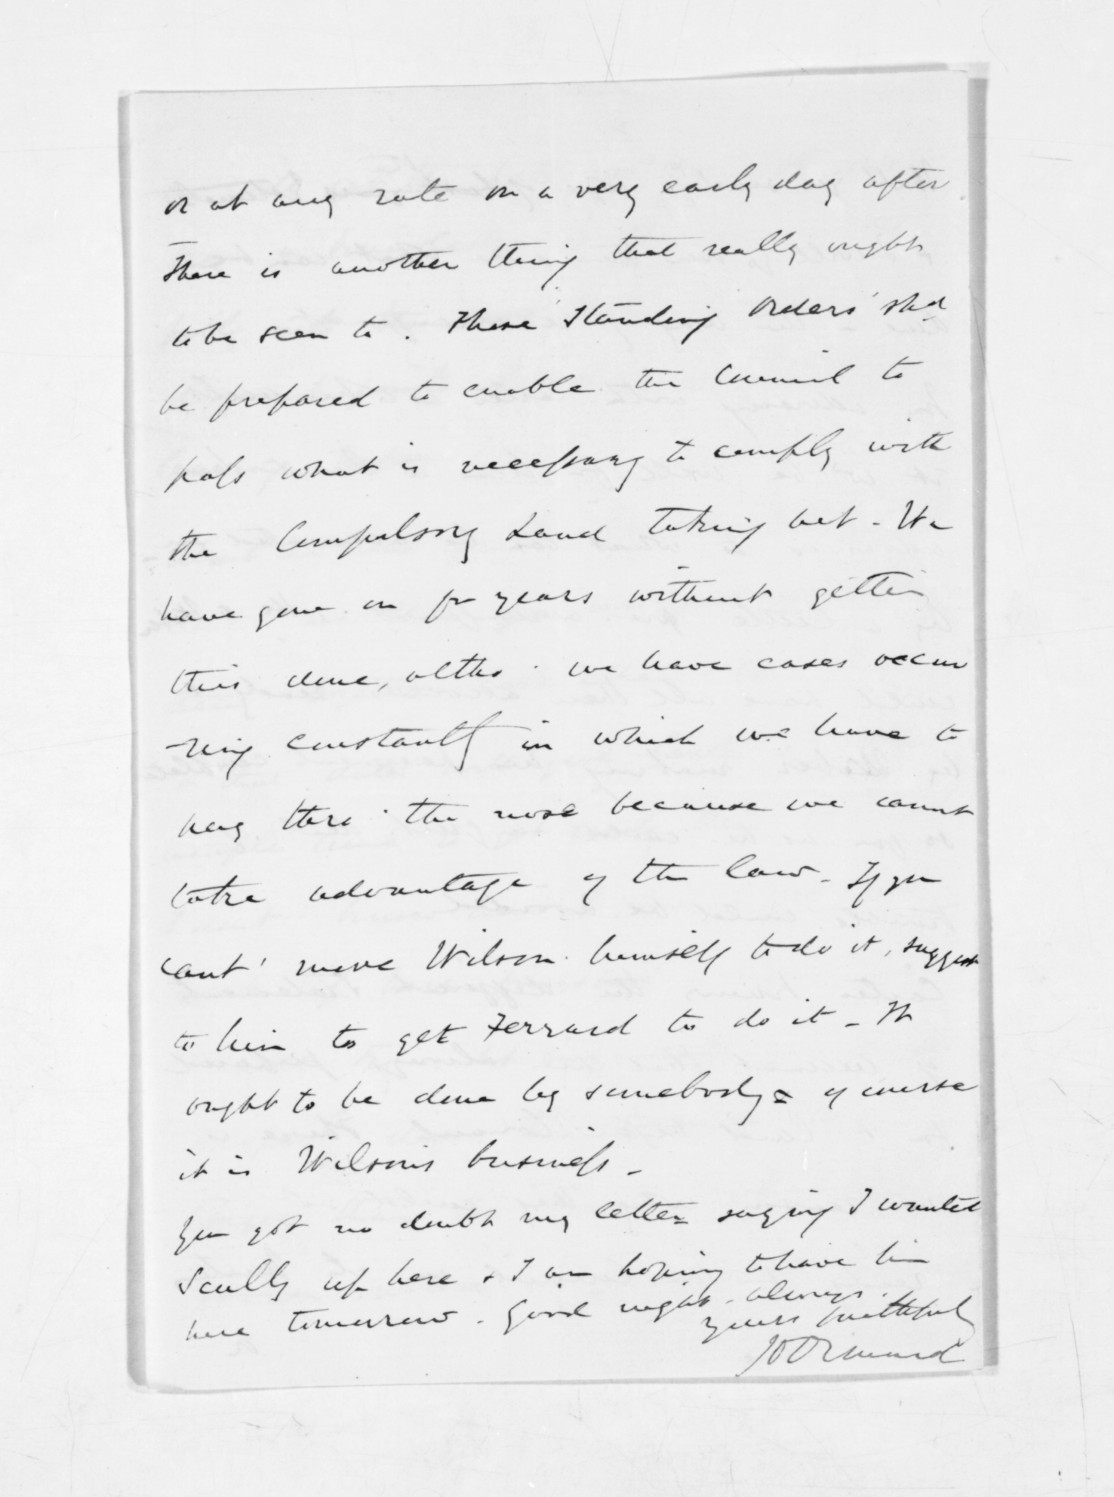 or at any rate on a very early day after.
There is another thing that really ought
to be seen to. Those 'Standing Orders' shd
be prepared to enable the Council to
pass what is necessary to comply with
the Compulsory Land Taking Act - We
have gone on for years without gettin
this done, altho' we have cases occur
ring constantly in which we have to
pay thro' the nose because we cannt
take advantage of the law - If you
cant' move Wilson himself to do it, suggest
to him to get Ferrard to do it - It
ought to be done by somebody = of course
it is Wilson's business -
You got no doubt my letter saying I wanted
Scully up here & I am hoping to have him
here tomorrow. Good night - always
yours faithfully
JD Ormond